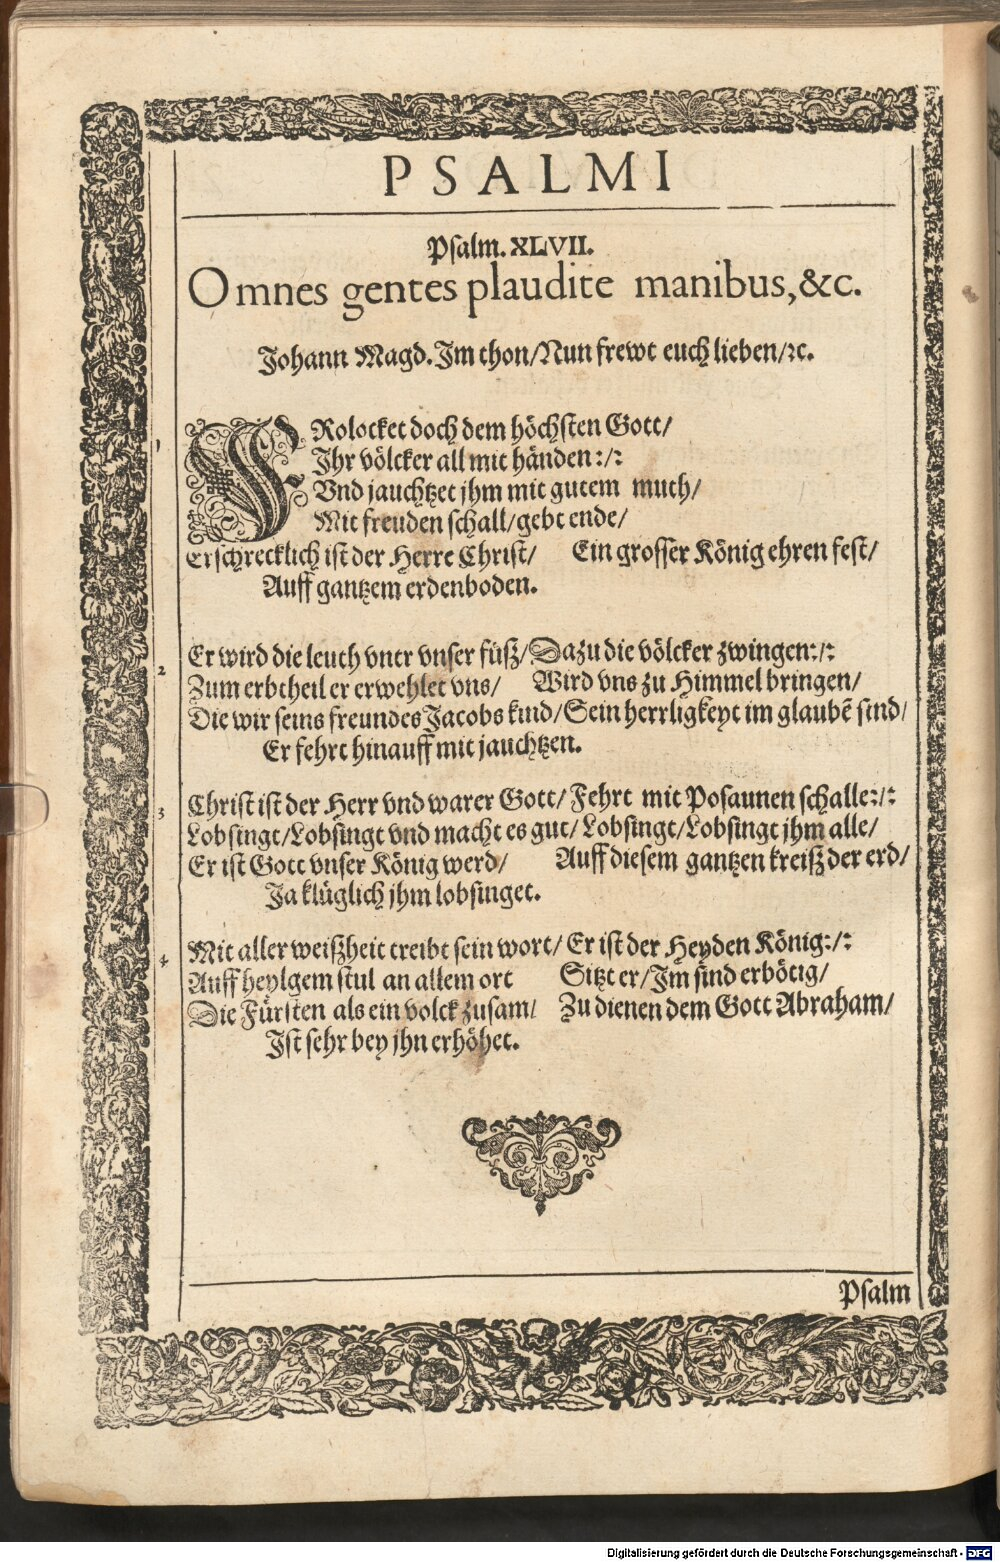 PSALMI
Psalm. XLVII.
Omnes gentes plaudite manibus, &c.
Johann Magd. Im thon/Nun frewt euch lieben/ꝛc.
1 FRolocket doch dem höchsten Gott/
Ihr völcker all mit händen:/:
Vnd jauchtzet jhm mit gutem muth/
Mit freuden schall/gebt ende/
Erschrecklich ist der Herre Christ/ Ein grosser König ehren fest/
Auff gantzem erdenboden.
2 Er wird die leuth vntr vnser füß/Dazu die völcker zwingen:/:
Zum erbtheil er erwehlet vns/ Wird vns zu Himmel bringen/
Die wir seins freundes Jacobs kind/Sein herrligkeyt im glaubẽ sind/
Er fehrt hinauff mit jauchtzen.
3 Christ ist der Herr vnd warer Gott/Fehrt mit Posaunen schalle:/:
Lobsingt/Lobsingt vnd macht es gut/Lobsingt/Lobsingt jhm alle/
Er ist Gott vnser König werd/ Auff diesem gantzen kreiß der erd/
Ja klüglich jhm lobsinget.
4 Mit aller weißheit treibt sein wort/Er ist der Heyden König:/:
Auff heylgem stul an allem ort Sitzt er/Im sind erbötig/
Die Fürsten als ein volck zusam/ Zu dienen dem Gott Abraham/
Ist sehr bey jhn erhöhet.
Psalm
Digitalisierung gefördert durch die Deutsche Forschungsgemeinschaft - DFG